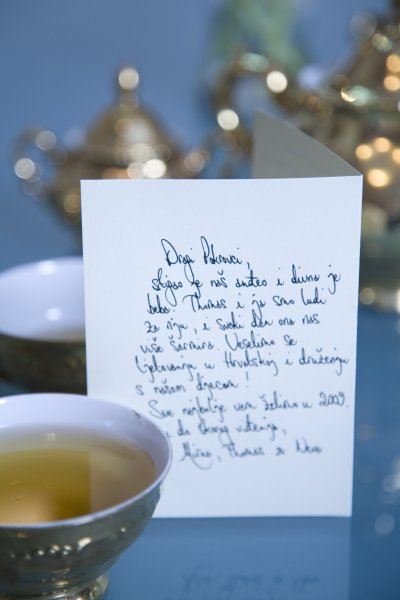 Dragi Pokrovci,
stigao je naš anđeo i divna je
beba. Thomas i ja smo ludi
za nju, i svaki dan ona nas
više šarmira. Veselimo se
ljetovanju u Hrvatskoj i druženju
s našom djecom!
Sve najbolje vam želimo u 2009.
i do skorog viđenja,
Thomas &